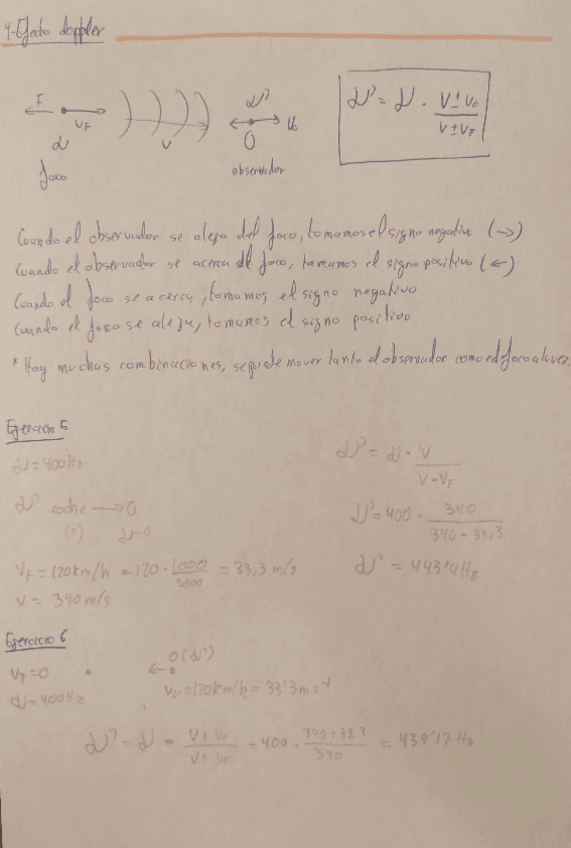 4-Efecto doppler
F
v_F
v
ν'
v_0
ν
O
foco
observador
ν' = ν · (v ± v_0)/(v ± v_F)
Cuando el observador se aleja del foco, tomamos el signo negativo (→)
Cuando el observador se acerca al foco, tomamos el signo positivo (←)
Cuando el foco se acerca, tomamos el signo negativo
Cuando el foco se aleja, tomamos el signo positivo
* Hay muchas combinaciones, se puede mover tanto el observador como el foco a la vez.
Ejercicio 5
ν = 400 Hz
ν' coche → O
(F)
v_F = 120 km/h = 120 · 1000/3600 = 33,3 m/s
v = 340 m/s
ν' = ν · v/(v - v_F)
ν' = 400 · 340/(340 - 33,3)
ν' = 443'4 Hz
Ejercicio 6
v_F = 0
← O (ν')
ν = 400 Hz
v_0 = 120 km/h = 33'3 m s⁻¹
ν' = ν · (v + v_0)/(v + v_F) = 400 · (340 + 33,3)/340 = 439'17 Hz